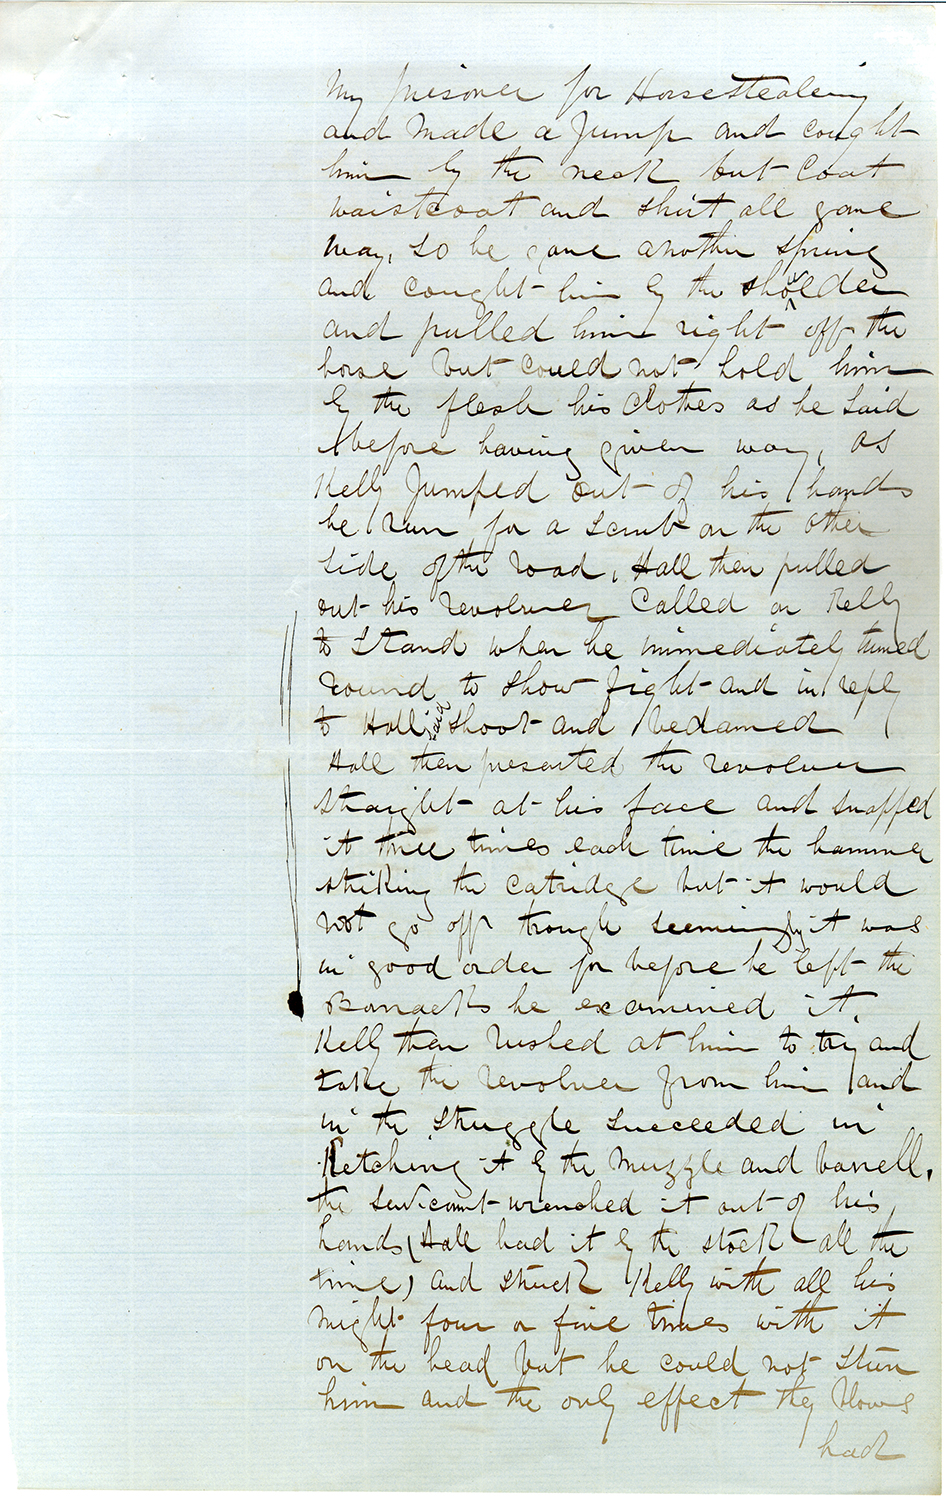 My prisoner for Horsestealing
and made a Jump and cought
him by the neck but Coat
waistcoat and shirt all gave
way, so he gave another spring
and cought him by the shoulder
and pulled him right off the
horse but could not hold him
by the flesh his Clothes as he Said
before having given way, as
Kelly Jumped out of his hands
he run for a scrub on the other
side of the road, Hall then pulled
out his revolver Called on Kelly
to Stand when he immediately turned
round to show fight and in reply
to Hall said shoot and bedamed
Hall then presented the revolver
straight at his face and snapped
it three times each time the hammer
striking the catridge but it would
not go off trough seemingly it was
in good order for before he left the
Barracks he examined it.
Kelly then rushed at him to try and
take the revolver from him and
in the struggle succeeded in
Ketching it by the muzzle and barrell,
the wrenched it out of his
hands (Hall had it by the stock all the
time) and struck Kelly with all his
might four or five times with it
on the head but he could not stun
him and the only effect they blows
had